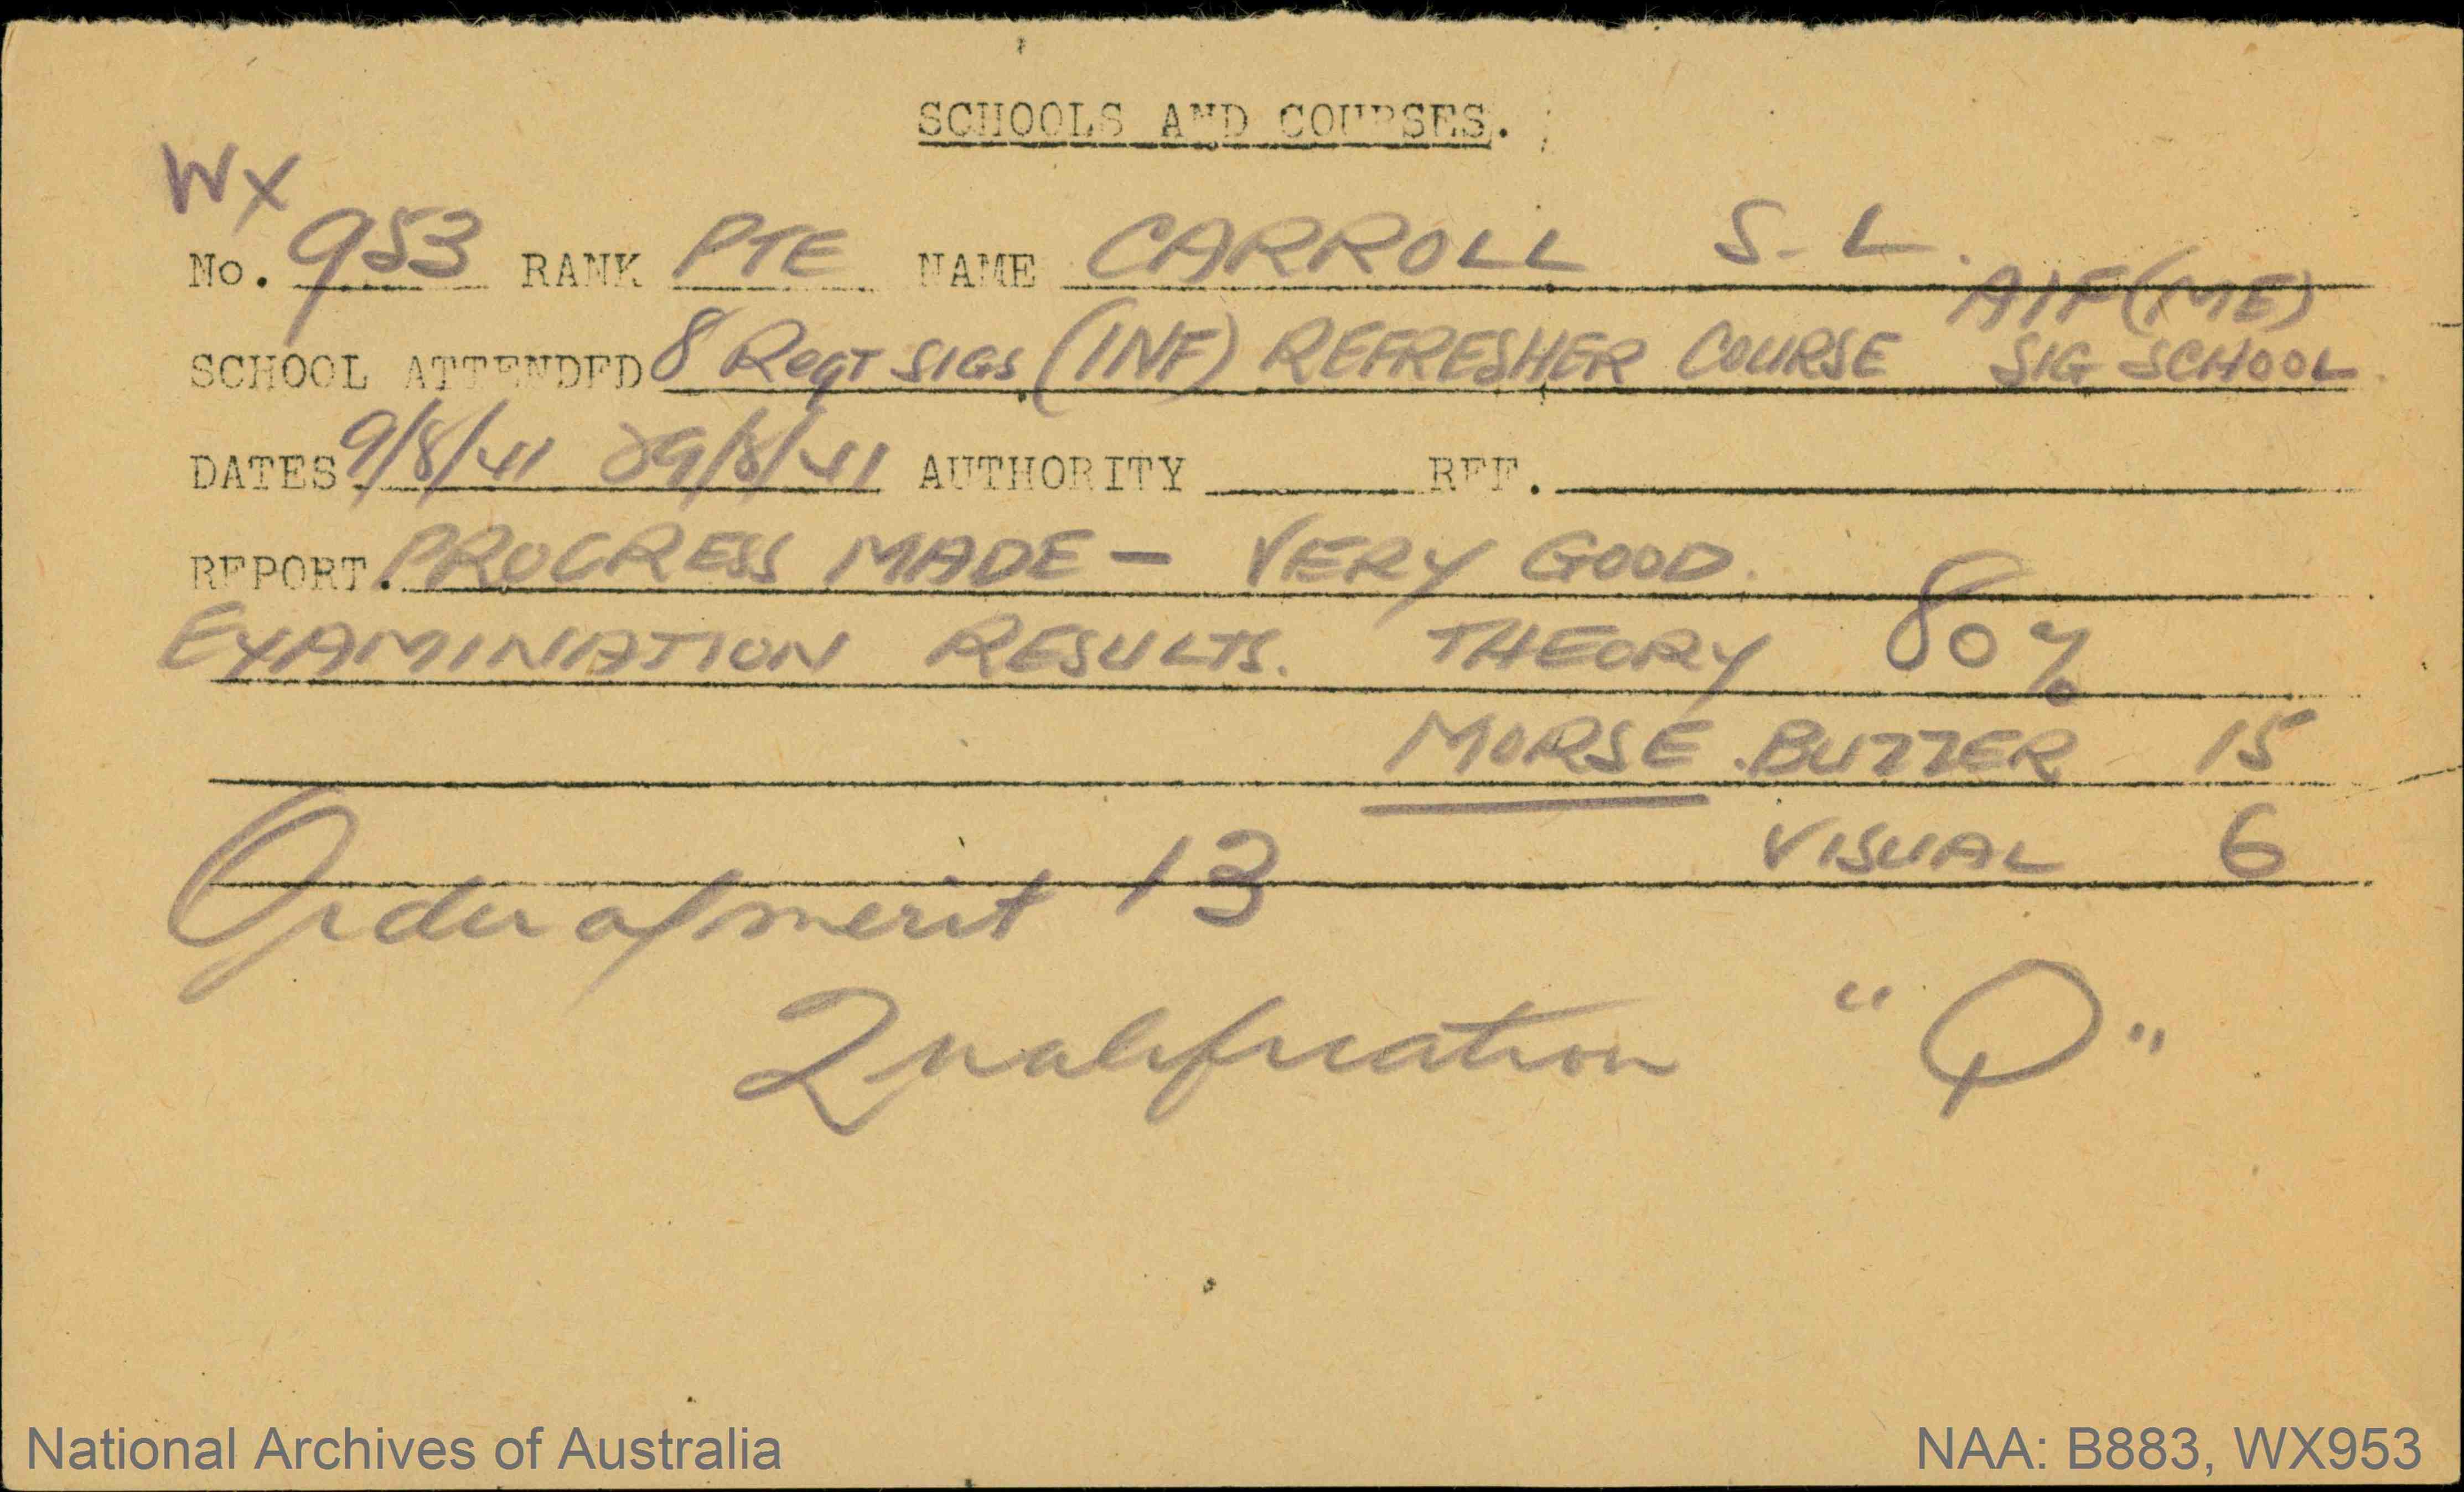 SCHOOLS AND COURSES.
WX
No. 953 RANK PTE NAME CARROLL S. L.
AIF (ME)
SCHOOL ATTENDED 8 Regt SIGS (INF) REFRESHER COURSE SIG SCHOOL
DATES 9/8/41 29/8/41 AUTHORITY REF.
REPORT. PROGRESS MADE - VERY GOOD.
EXAMINATION RESULTS. THEORY 80%
MORSE. BUZZER 15
VISUAL 6
Order of merit 13
Qualification "Q"
National Archives of Australia
NAA: B883, WX953